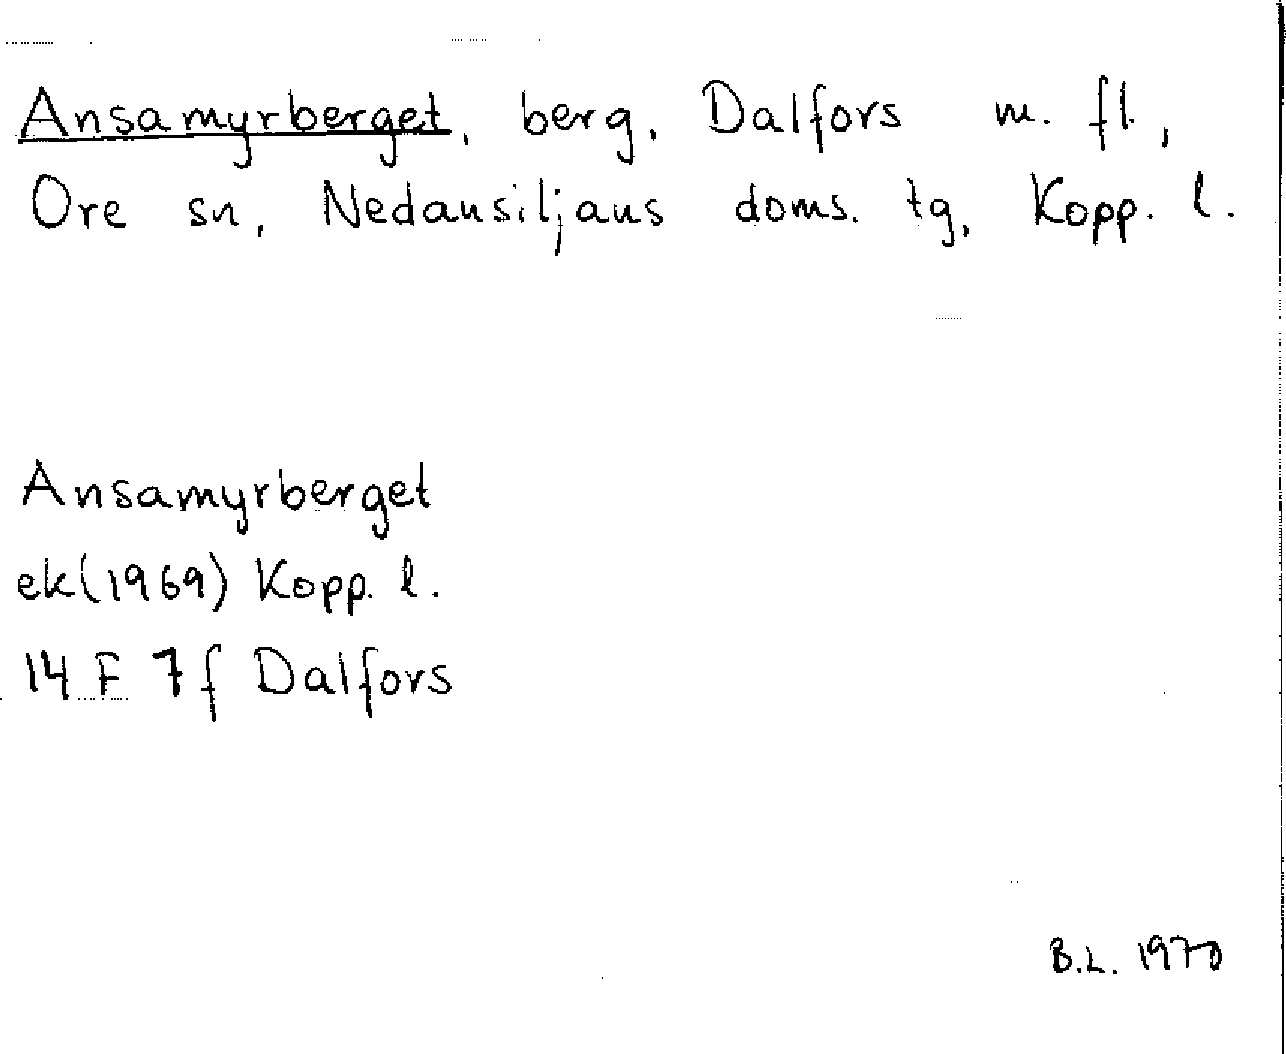 Ansamyrberget, berg, Dalfors m. fl.,
Ore sn, Nedansiljans doms. tg, Kopp. l.
Ansamyrberget
ek(1969) Kopp. l.
14 F 7 f Dalfors
B.L. 1970